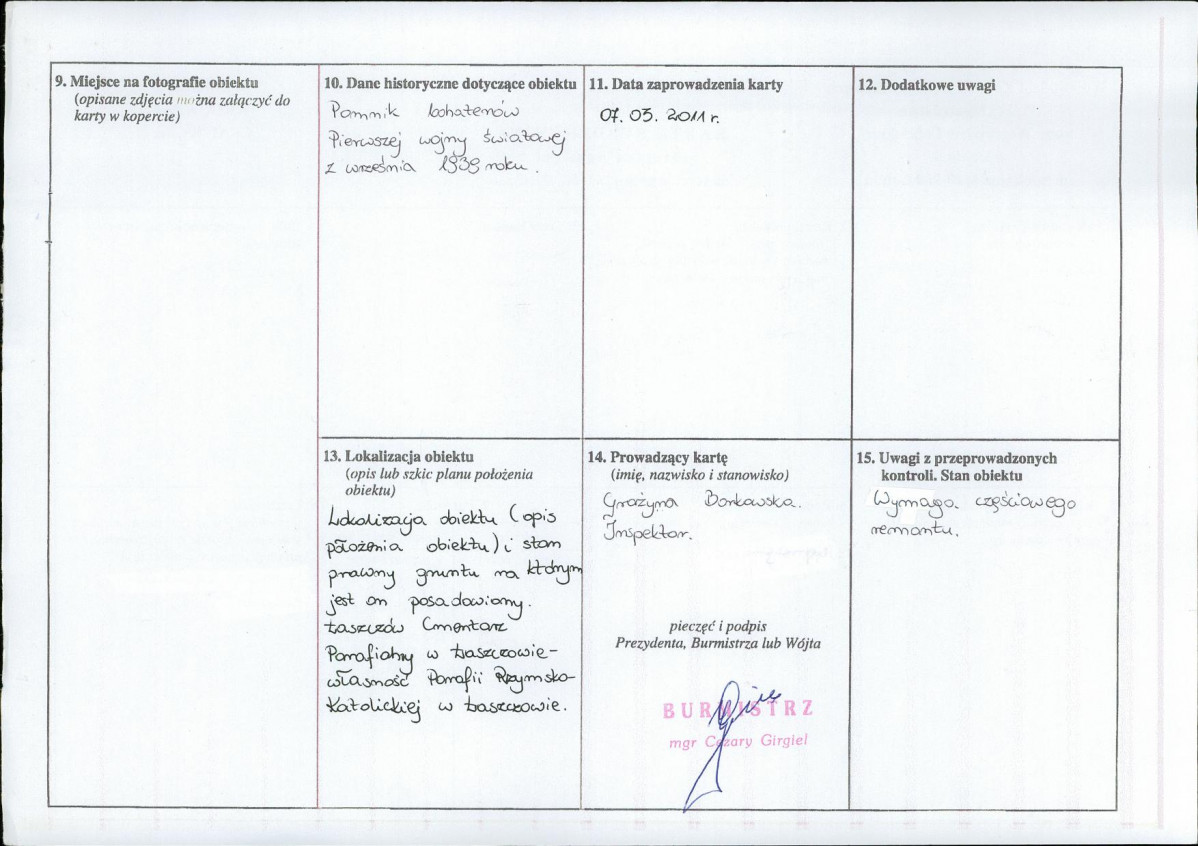 9. Miejsce na fotografie obiektu
(opisane zdjęcia można załączyć do
karty w kopercie)
10. Dane historyczne dotyczące obiektu
Pomnik bohaterów
Pierwszej wojny światowej
z września 1939 roku.
11. Data zaprowadzenia karty
07.03.2011 r.
12. Dodatkowe uwagi
13. Lokalizacja obiektu
(opis lub szkic planu położenia
obiektu)
Lokalizacja obiektu (opis
położenia obiektu) i stan
prawny gruntu na którym
jest on posadowiony.
Łaszczów Cmentarz
Parafialny w Łaszczowie-
własność Parafii Rzymsko-
Katolickiej w Łaszczowie.
14. Prowadzący kartę
(imię, nazwisko i stanowisko)
Grażyna Borkowska.
Inspektor.
pieczęć i podpis
Prezydenta, Burmistrza lub Wójta
BURMISTRZ
mgr Cezary Girgiel
15. Uwagi z przeprowadzonych
kontroli. Stan obiektu
Wymaga częściowego
remontu.